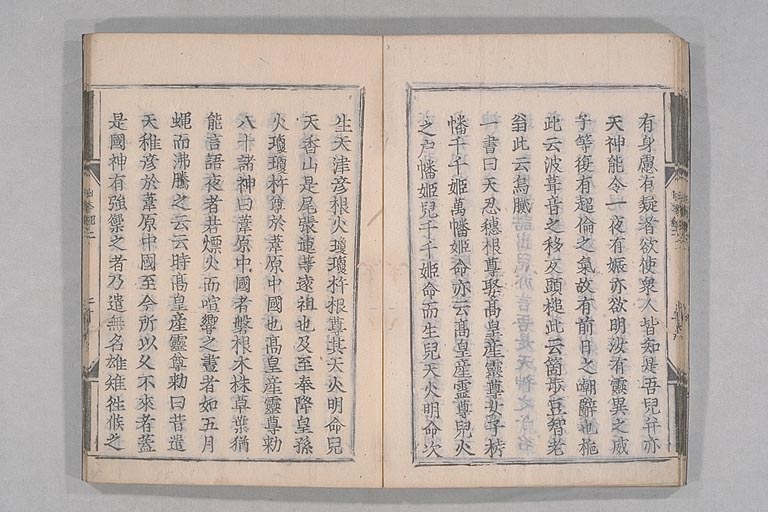 有身慮有疑者欲使衆人皆知是吾兒并亦
天神能令一夜有娠亦欲明汝有靈異之威
子等復有超倫之氣故有前日之嘲辭也梔
此云波茸音之移反頭槌此云箇歩豆智老
翁此云烏膩
一書曰天忍穗根尊娶髙皇産靈尊女子栲
幡千千姬萬幡姬命亦云髙皇産靈尊兒火
之戸幡姬兒千千姬命而生兒天火明命次
生天津彦根火瓊瓊杵根尊其天火明命兒
天香山是尾張連等遠祖也及至奉降皇孫
火瓊瓊杵尊於葦原中國也髙皇産靈尊勅
八十諸神曰葦原中國者磐根木株草葉猶
能言語夜者若熛火而喧響之晝者如五月
蠅而沸騰之云云時髙皇産靈尊勅曰昔遣
天稚彦於葦原中國至今所以久不來者蓋
是國神有強禦之者乃遣無名雄雉徃候之